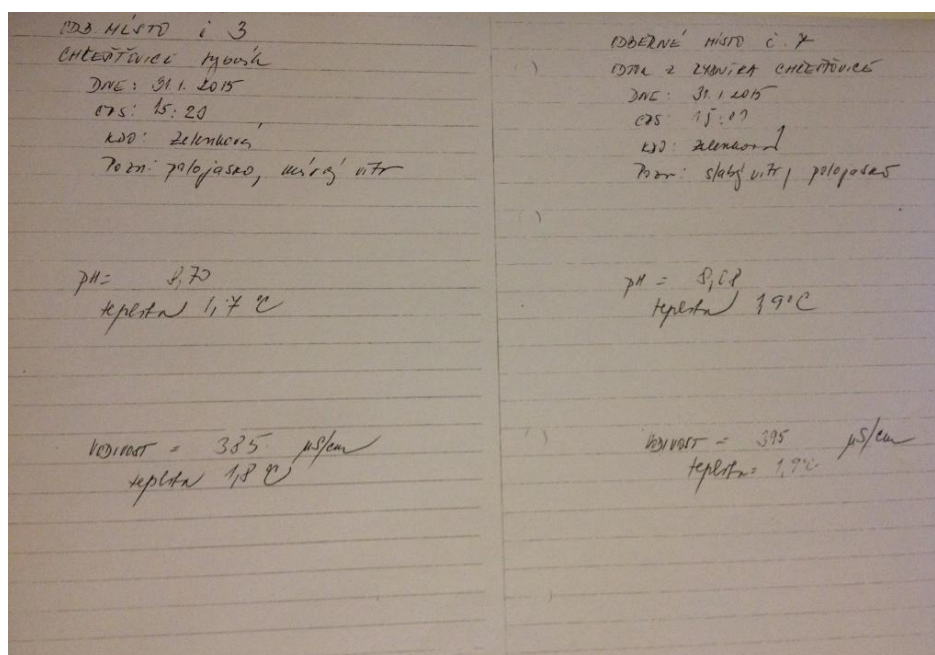 ODB. MÍSTO č 3
CHŘEŠŤOVICE rybník
DNE: 31. 1. 2015
ČAS: 15:20
KDO: Zelenková
Pozn: polojasno, mírný vítr
pH = 8,70
teplota 1,7 °C
VODIVOST = 385 µS/cm
teplota 1,8 °C
ODBĚRNÉ MÍSTO č. 7
Z RYBNÍKA CHŘEŠŤOVICE
DNE: 31. 1. 2015
ČAS:
KDO: Zelenková
Pozn: slabý vítr, polojasno
pH = 8,68
teplota
VODIVOST = 395 µS/cm
teplota = 1,9°C